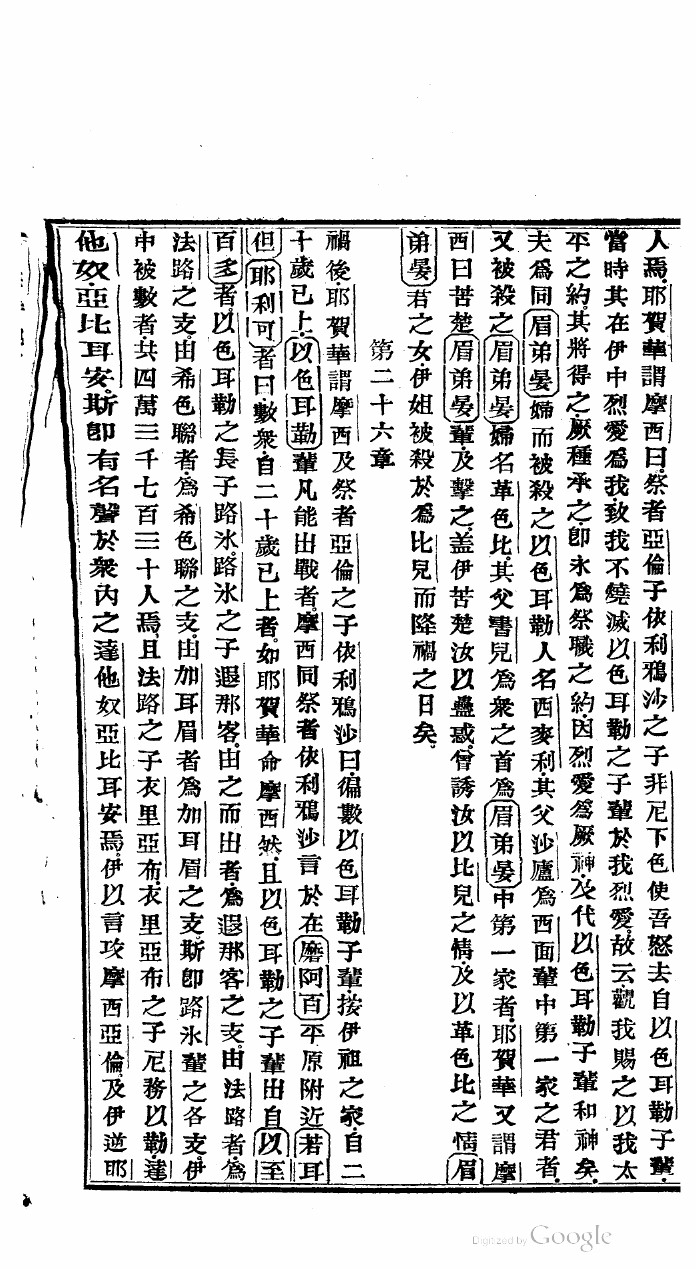 人焉耶賀華謂摩西曰祭者亞倫子依利鴉沙之子非尼下色使吾怒去自以色耳勒子輩
當時其在伊中烈愛爲我致我不繞滅以色耳勒之子輩於我烈愛故云觀我賜之以我太
平之約其將得之厥種承之即永爲祭職之約因烈愛爲厥神及代以色耳勒子輩和神矣
夫爲同眉弟晏婦而被殺之以色耳勒人名西麥利其父沙廬爲西面輩中第一家之君者
又被殺之眉弟晏婦名革色比其父書兒爲衆之首爲眉弟晏中第一家者耶賀華又謂摩
西曰苦楚眉弟晏輩及擊之蓋伊苦楚汝以蠱惑曾誘汝以比兒之情及以革色比之情眉
弟晏君之女伊姐被殺於爲比兒而降禍之日矣
第二十六章
禍後耶賀華謂摩西及祭者亞倫之子依利鴉沙曰徧數以色耳勒子輩按伊祖之家自二
十歲已上以色耳勒輩凡能出戰者摩西同祭者依利鴉沙言於在磨阿百平原附近若耳
但耶利可者曰數衆自二十歲已上者如耶賀華命摩西然且以色耳勒之子輩出自以至
百多者以色耳勒之長子路氷路氷之子遐那客由之而出者爲遐那客之支由法路者爲
法路之支由希色聯者爲希色聯之支由加耳眉者爲加耳眉之支斯即路氷輩之各支伊
中被數者共四萬三千七百三十人焉且法路之子衣里亞布衣里亞布之子尼務以勒達
他奴亞比耳安斯即有名聲於衆內之達他奴亞比耳安焉伊以言攻摩西亞倫及伊逆耶
Digitized by Google